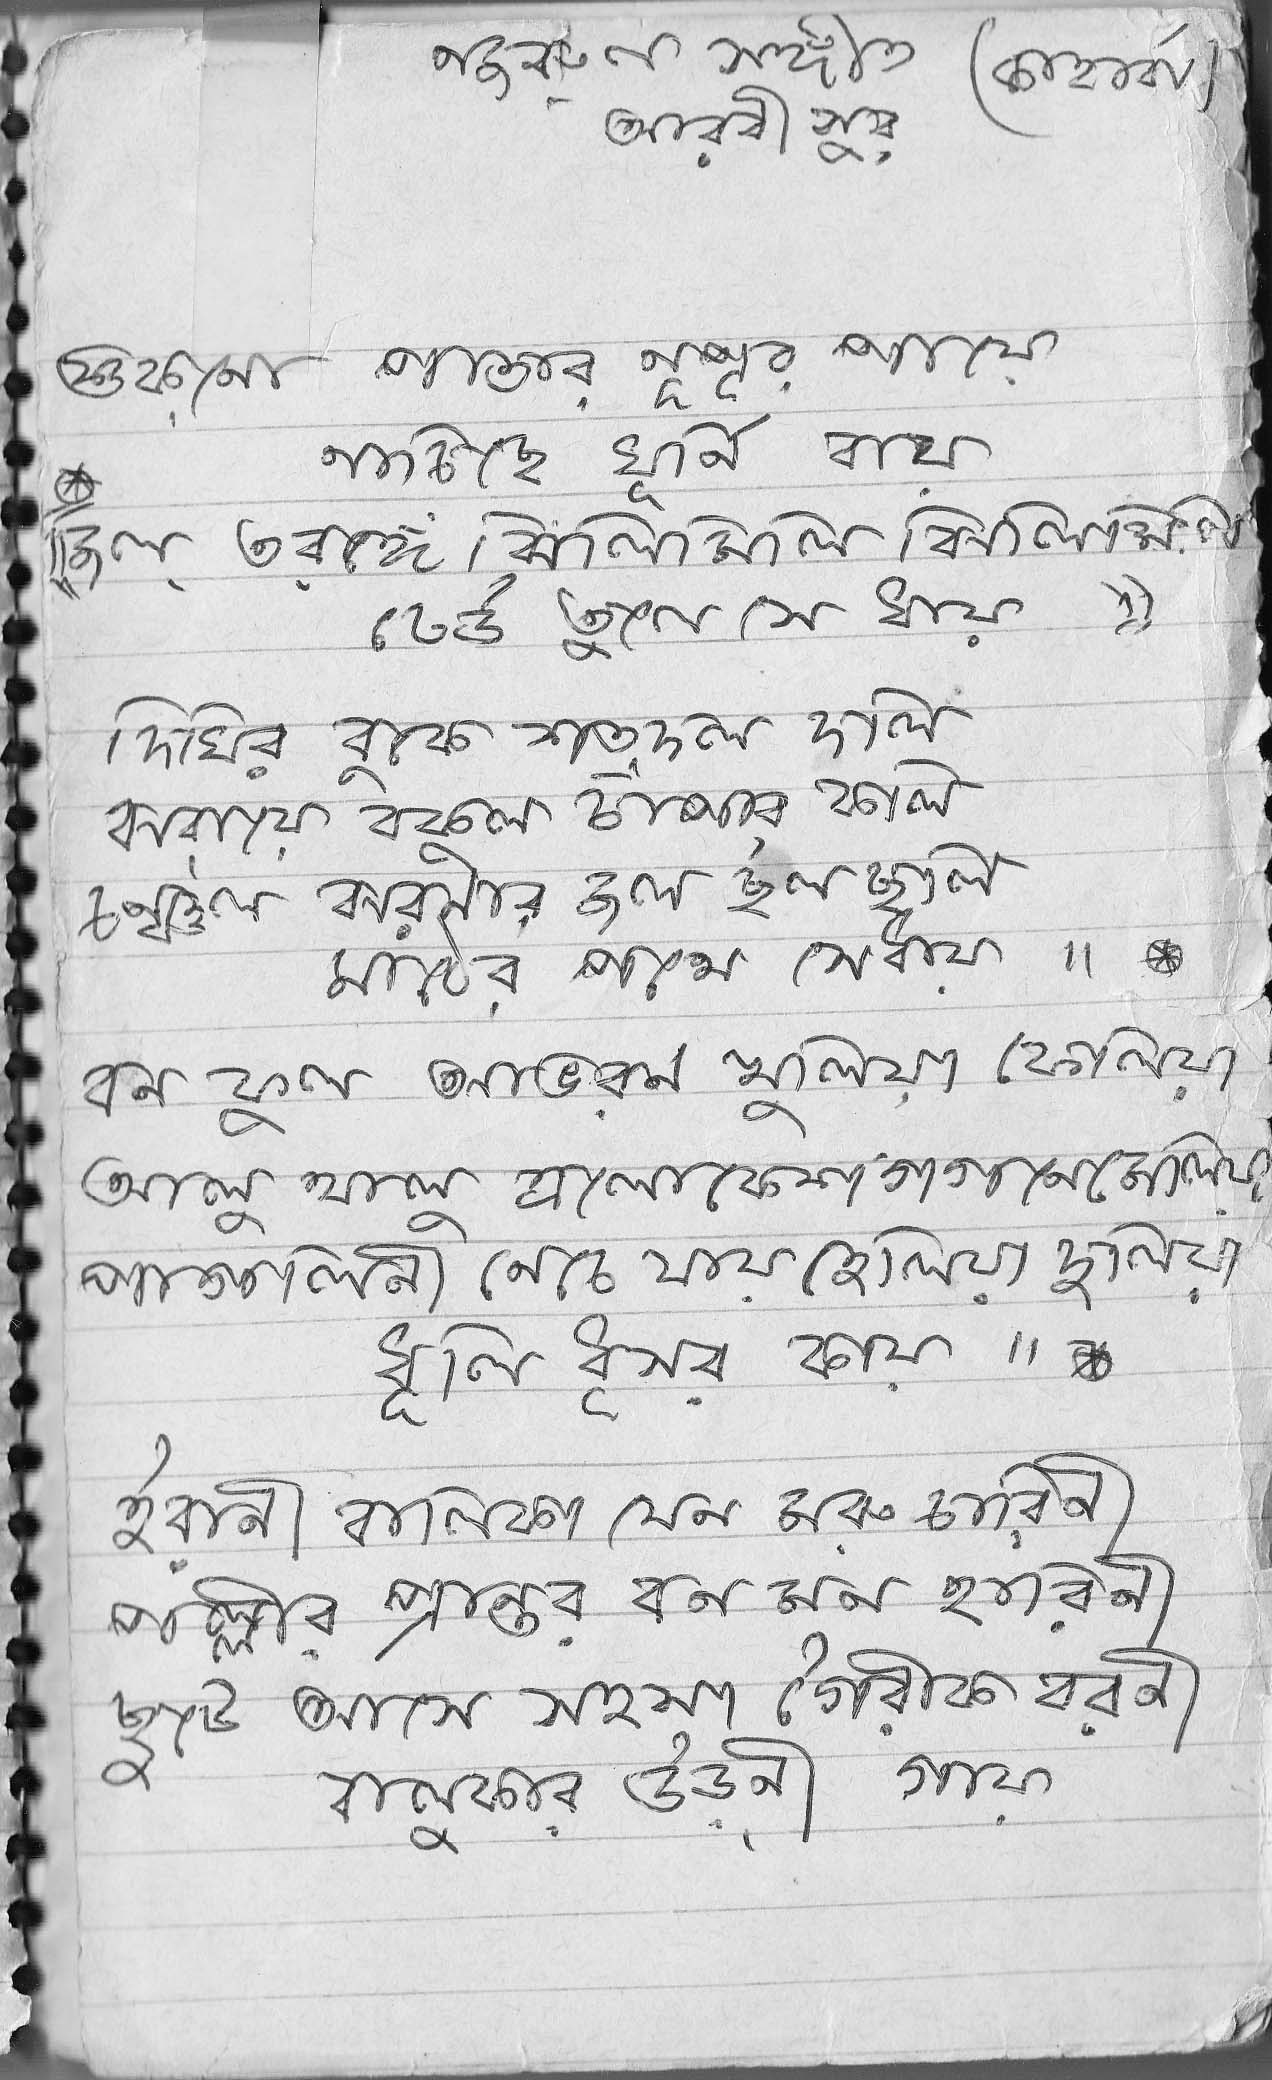 নজরুল সঙ্গীত (কাহার্বা)
আরবী সুর
শুকনো পাতার নূপুর পায়ে
নাচিছে ঘূর্নি বায়
জল তরঙ্গে ঝিলিমিলি ঝিলিমিলি
ঢেউ তুলে সে ধায় ॥
দিঘির বুকে শতদল দলি
ঝরায়ে বকুল চাঁপার কলি
চঞ্চল ঝরনার জল ছল ছলি
মাঠের পথে সে ধায় ॥
বন ফুল আভরন খুলিয়া ফেলিয়া
আলু থালু এলোকেশ গগনে মেলিয়া
পাগলিনী নেচে যায় হেলিয়া দুলিয়া
ধূলি ধূসর কায় ॥
ইরানী বালিকা যেন মরু চারিনী
পল্লীর প্রান্তর বন মন হারিনী
ছুটে আসে সহসা গৈরীক বরনী
বালুকার উড়নী গায়